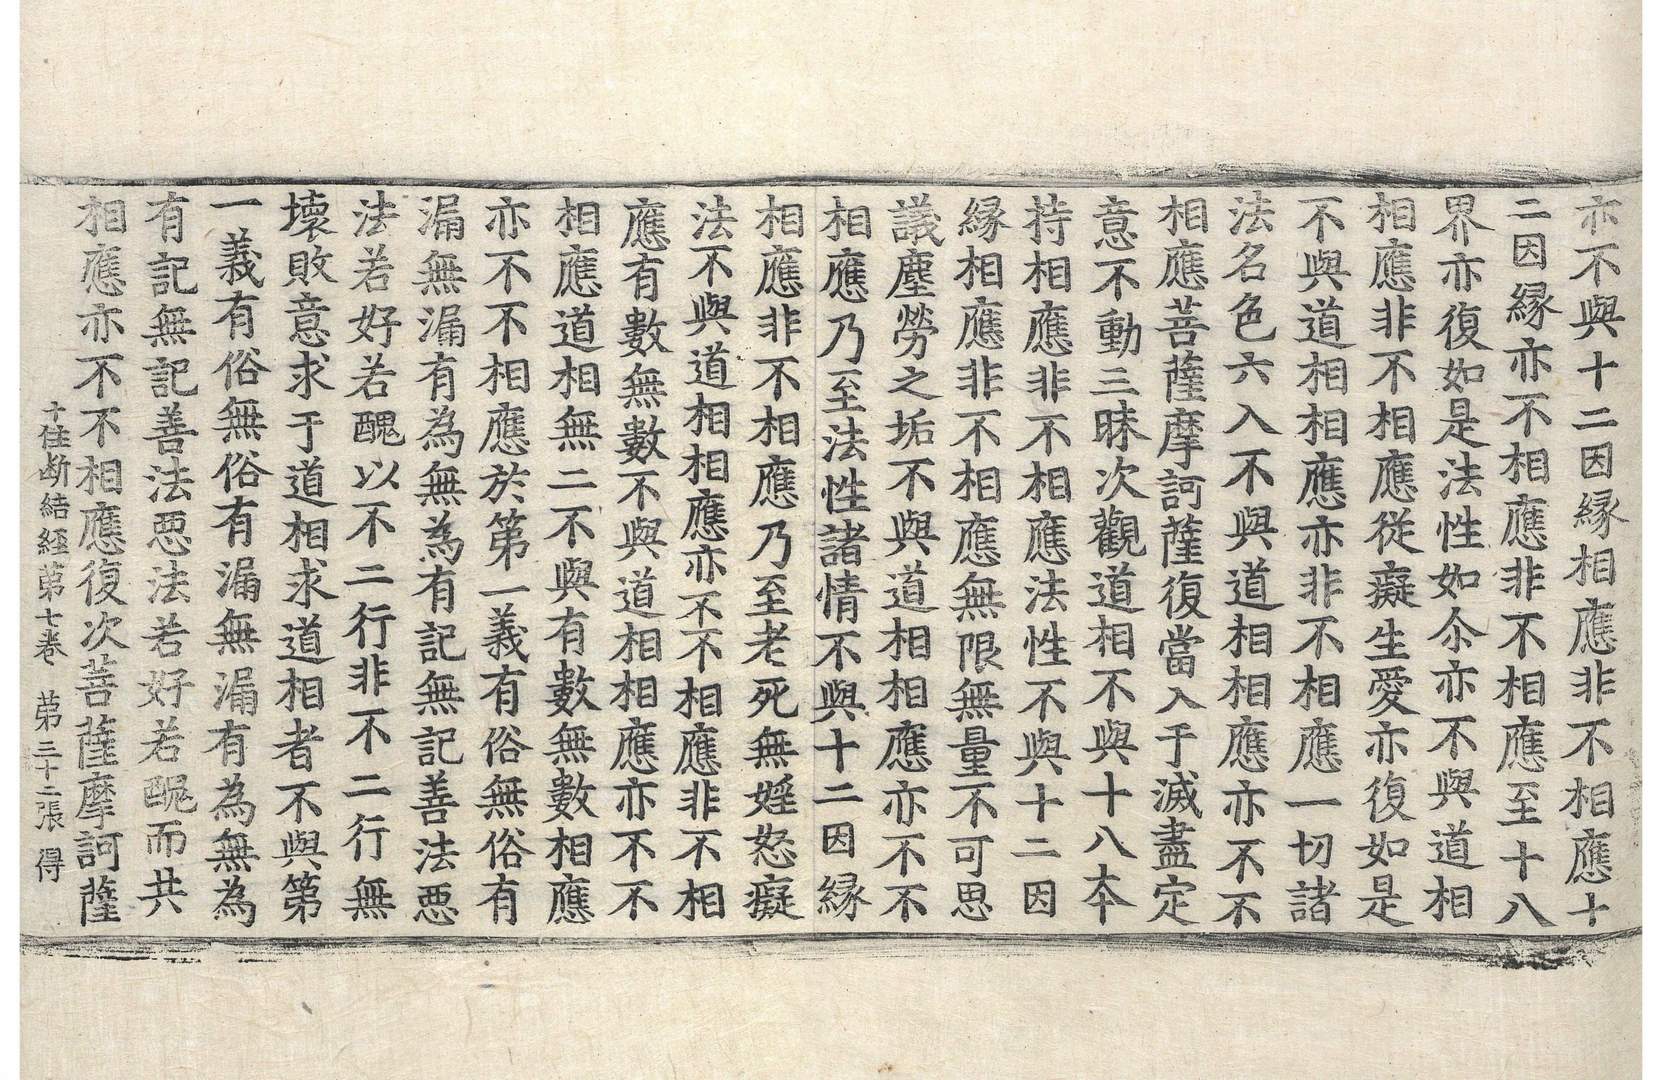 亦不與十二因縁相應非不相應十
二因縁亦不相應非不相應至十八
界亦復如是法性如尒亦不與道相
相應非不相應從癡生愛亦復如是
不與道相相應亦非不相應一切諸
法名色六入不與道相相應亦不不
相應菩薩摩訶薩復當入于滅盡定
意不動三昧次觀道相不與十八本
持相應非不相應法性不與十二因
縁相應非不相應無限無量不可思
議塵勞之垢不與道相相應亦不不
相應乃至法性諸情不與十二因縁
相應非不相應乃至老死無婬怒癡
法不與道相相應亦不不相應非不相
應有數無數不與道相相應亦不不
相應道相無二不與有數無數相應
亦不不相應於第一義有俗無俗有
漏無漏有為無為有記無記善法惡
法若好若醜以不二行非不二行無
壞敗意求于道相求道相者不與第
一義有俗無俗有漏無漏有為無為
有記無記善法惡法若好若醜而共
相應亦不不相應復次菩薩摩訶薩
十住斷結經第七卷　第三十二張　得